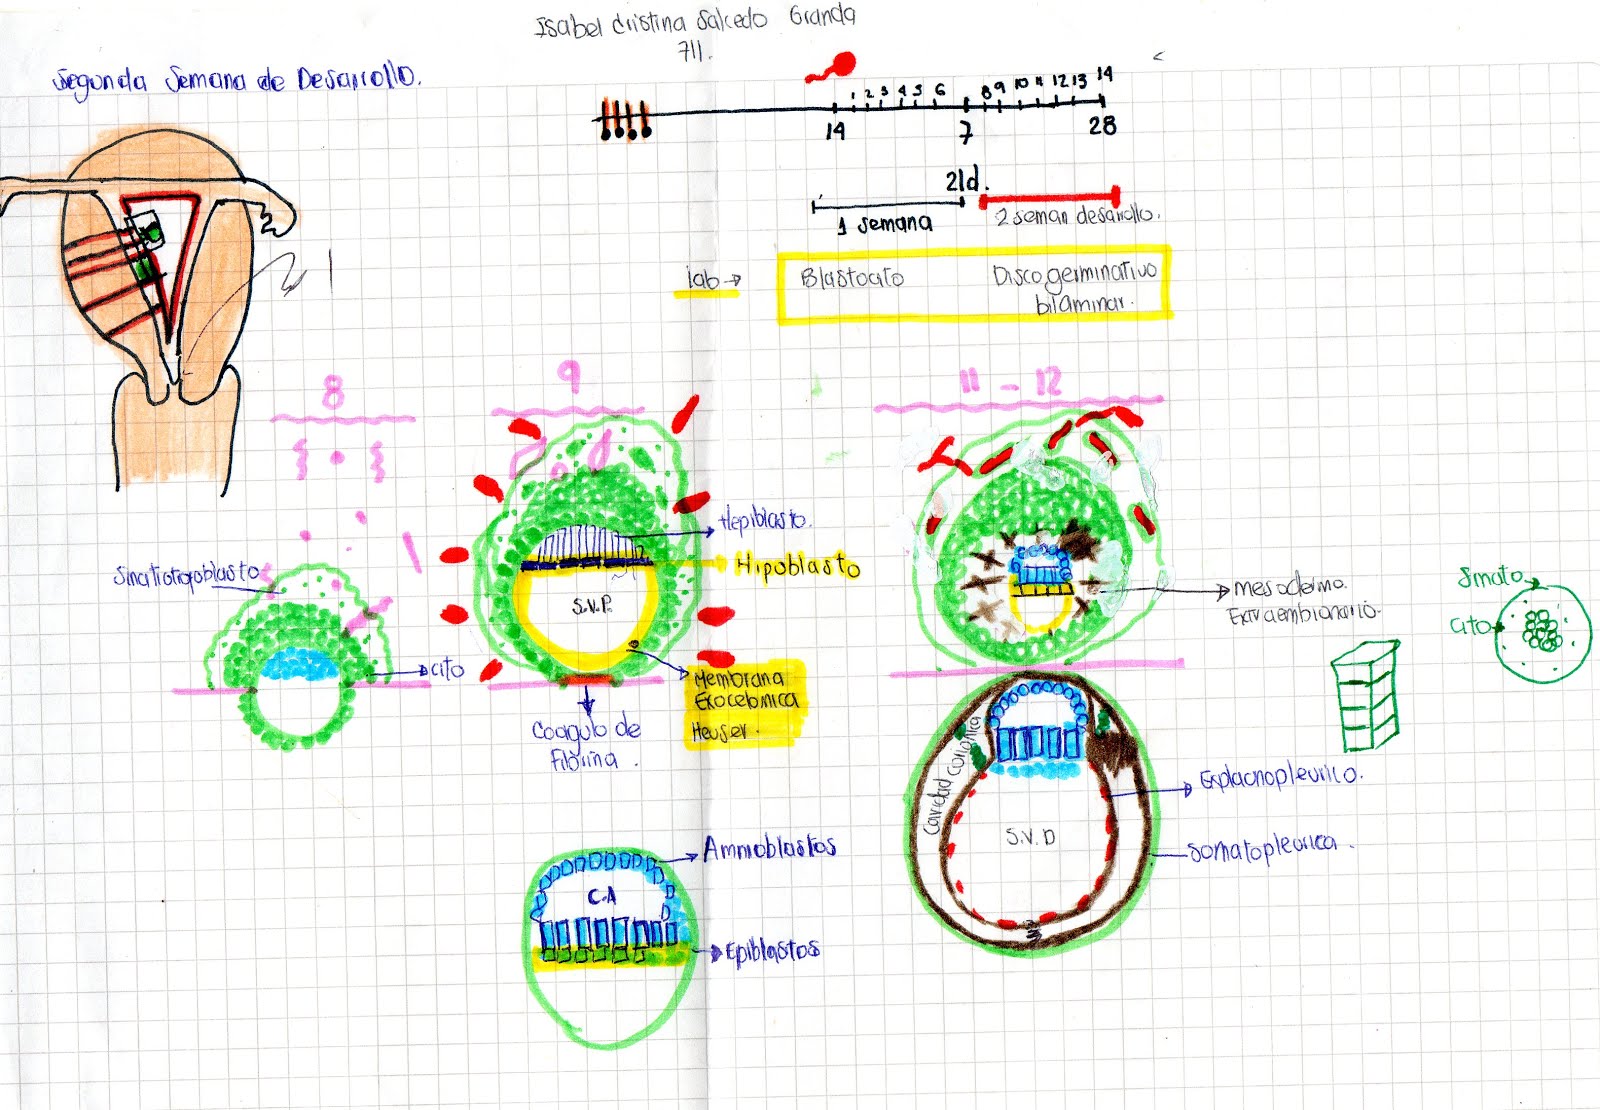 Isabel Cristina Salcedo Granda
711.
Segunda Semana de Desarrollo.
1 2 3 4 5 6 8 9 10 11 12 13 14
14 7 28
21d.
1 semana
2 seman desarrollo.
Blastocito
Disco germinativo
bilaminar.
8
9
11 - 12
Hepiblasto.
Hipoblasto
S.V.P.
cito
Membrana
Exocelomica
Heuser.
Coagulo de
Fibrina.
mesodermo.
Extraembrionario.
Sinsito
Cito
Cavidad corionica
S.V.D
Esplacnopleurico.
Somatopleurica.
Amnioblastos
C.A
Epiblastos